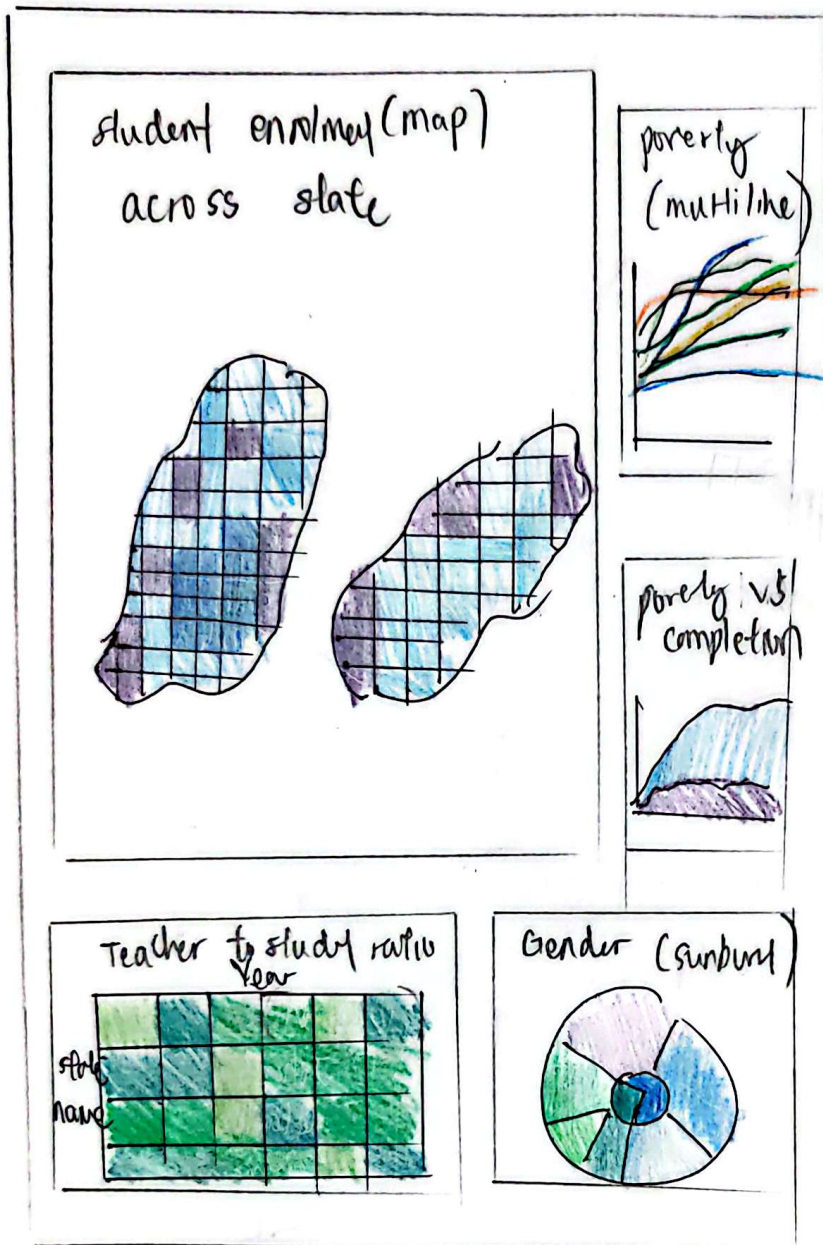 student enrolmet (map)
across state
poverty
(multiline)
poverty vs
completion
Teacher to studet ratio
Year
state
name
Gender (sunburst)